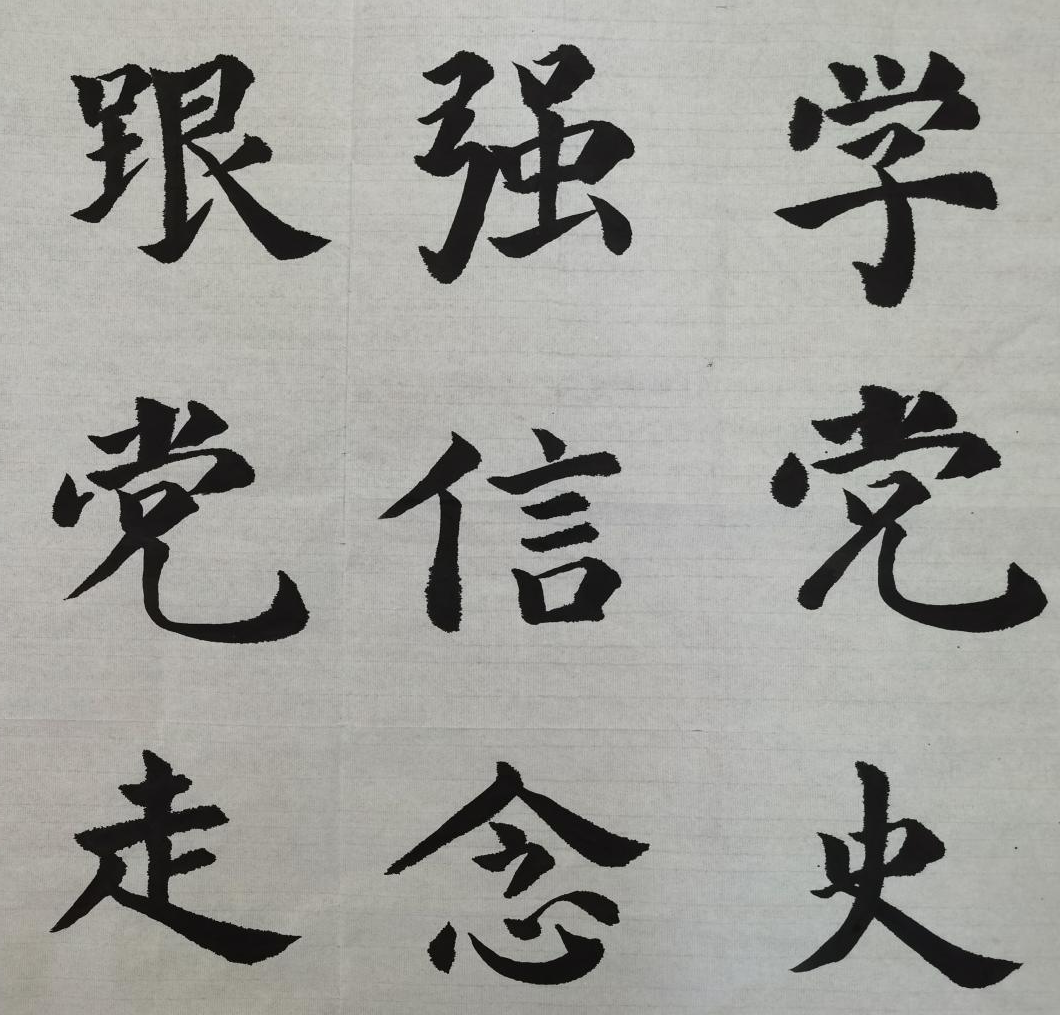 学党史
强信念
跟党走